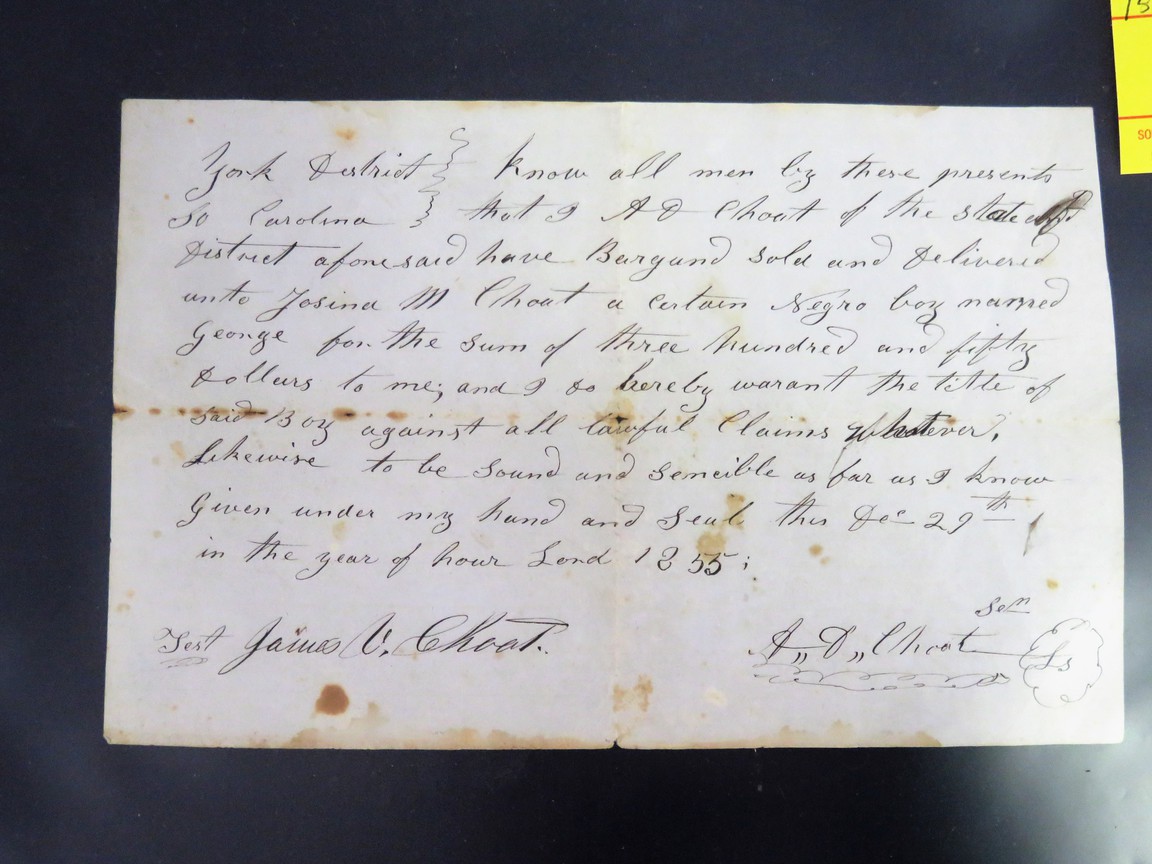 York District } Know all men by these presents
So Carolina } that I A D Choat of the state and
District aforesaid have Bargand sold and Delivered
unto Josina M Choat a certain Negro boy named
George for the sum of three hundred and fifty
Dollars to me; and I do hereby warant the title of
said Boy against all lawful Claims whatever,
Likewise to be sound and sencible as far as I know
Given under my hand and Seal this Dec 29th
in the year of hour Lord 1855;
Sen
Test James V. Choat.
A,, D,, Choat Ls
15
SO